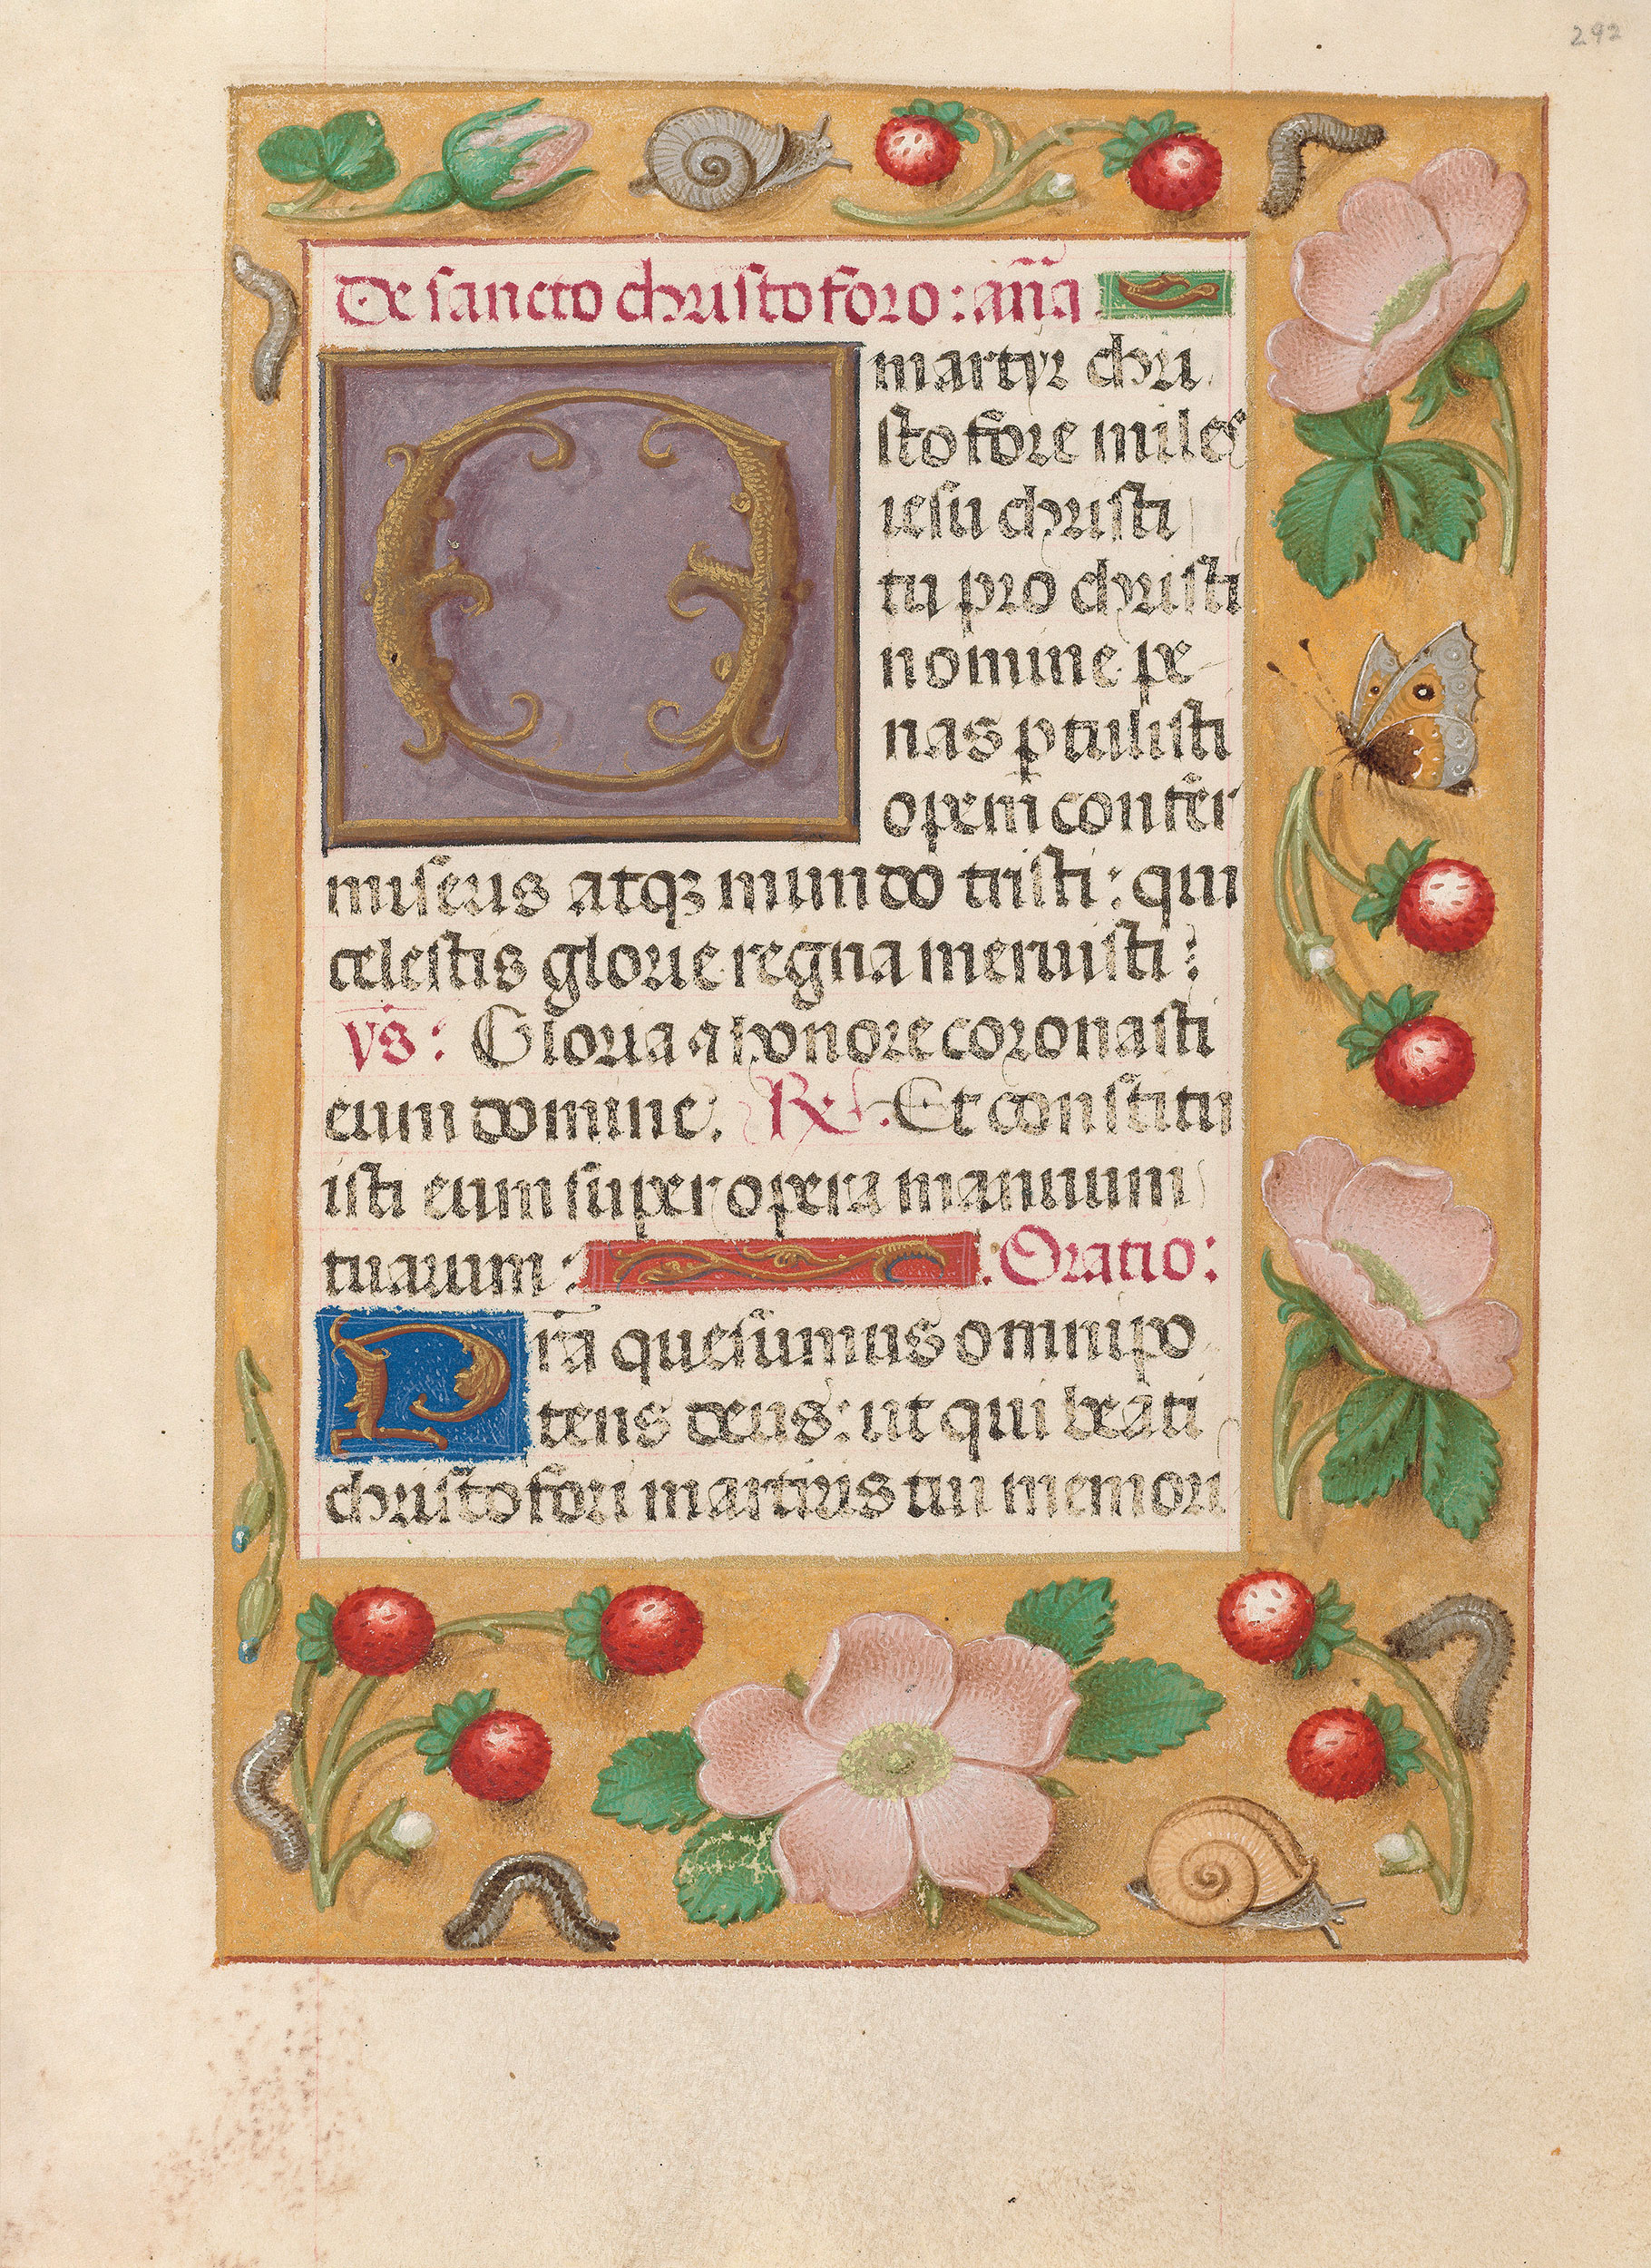 292
De sancto christoforo: an̄a
O martyr chri
stofore miles
iesu christi
tu pro christi
nomine pe
nas ꝑtulisti
opem confer
miseris atqꝫ mundo tristi: qui
celestis glorie regna meruisti:
v̄s: Gloria ⁊ honore coronasti
eum domine. R. Et constitu
isti eum super opera manuum
tuarum: Oratio:
Pr̄a quesumus omnipo
tens deus: ut qui beati
christofori martiris tui memori